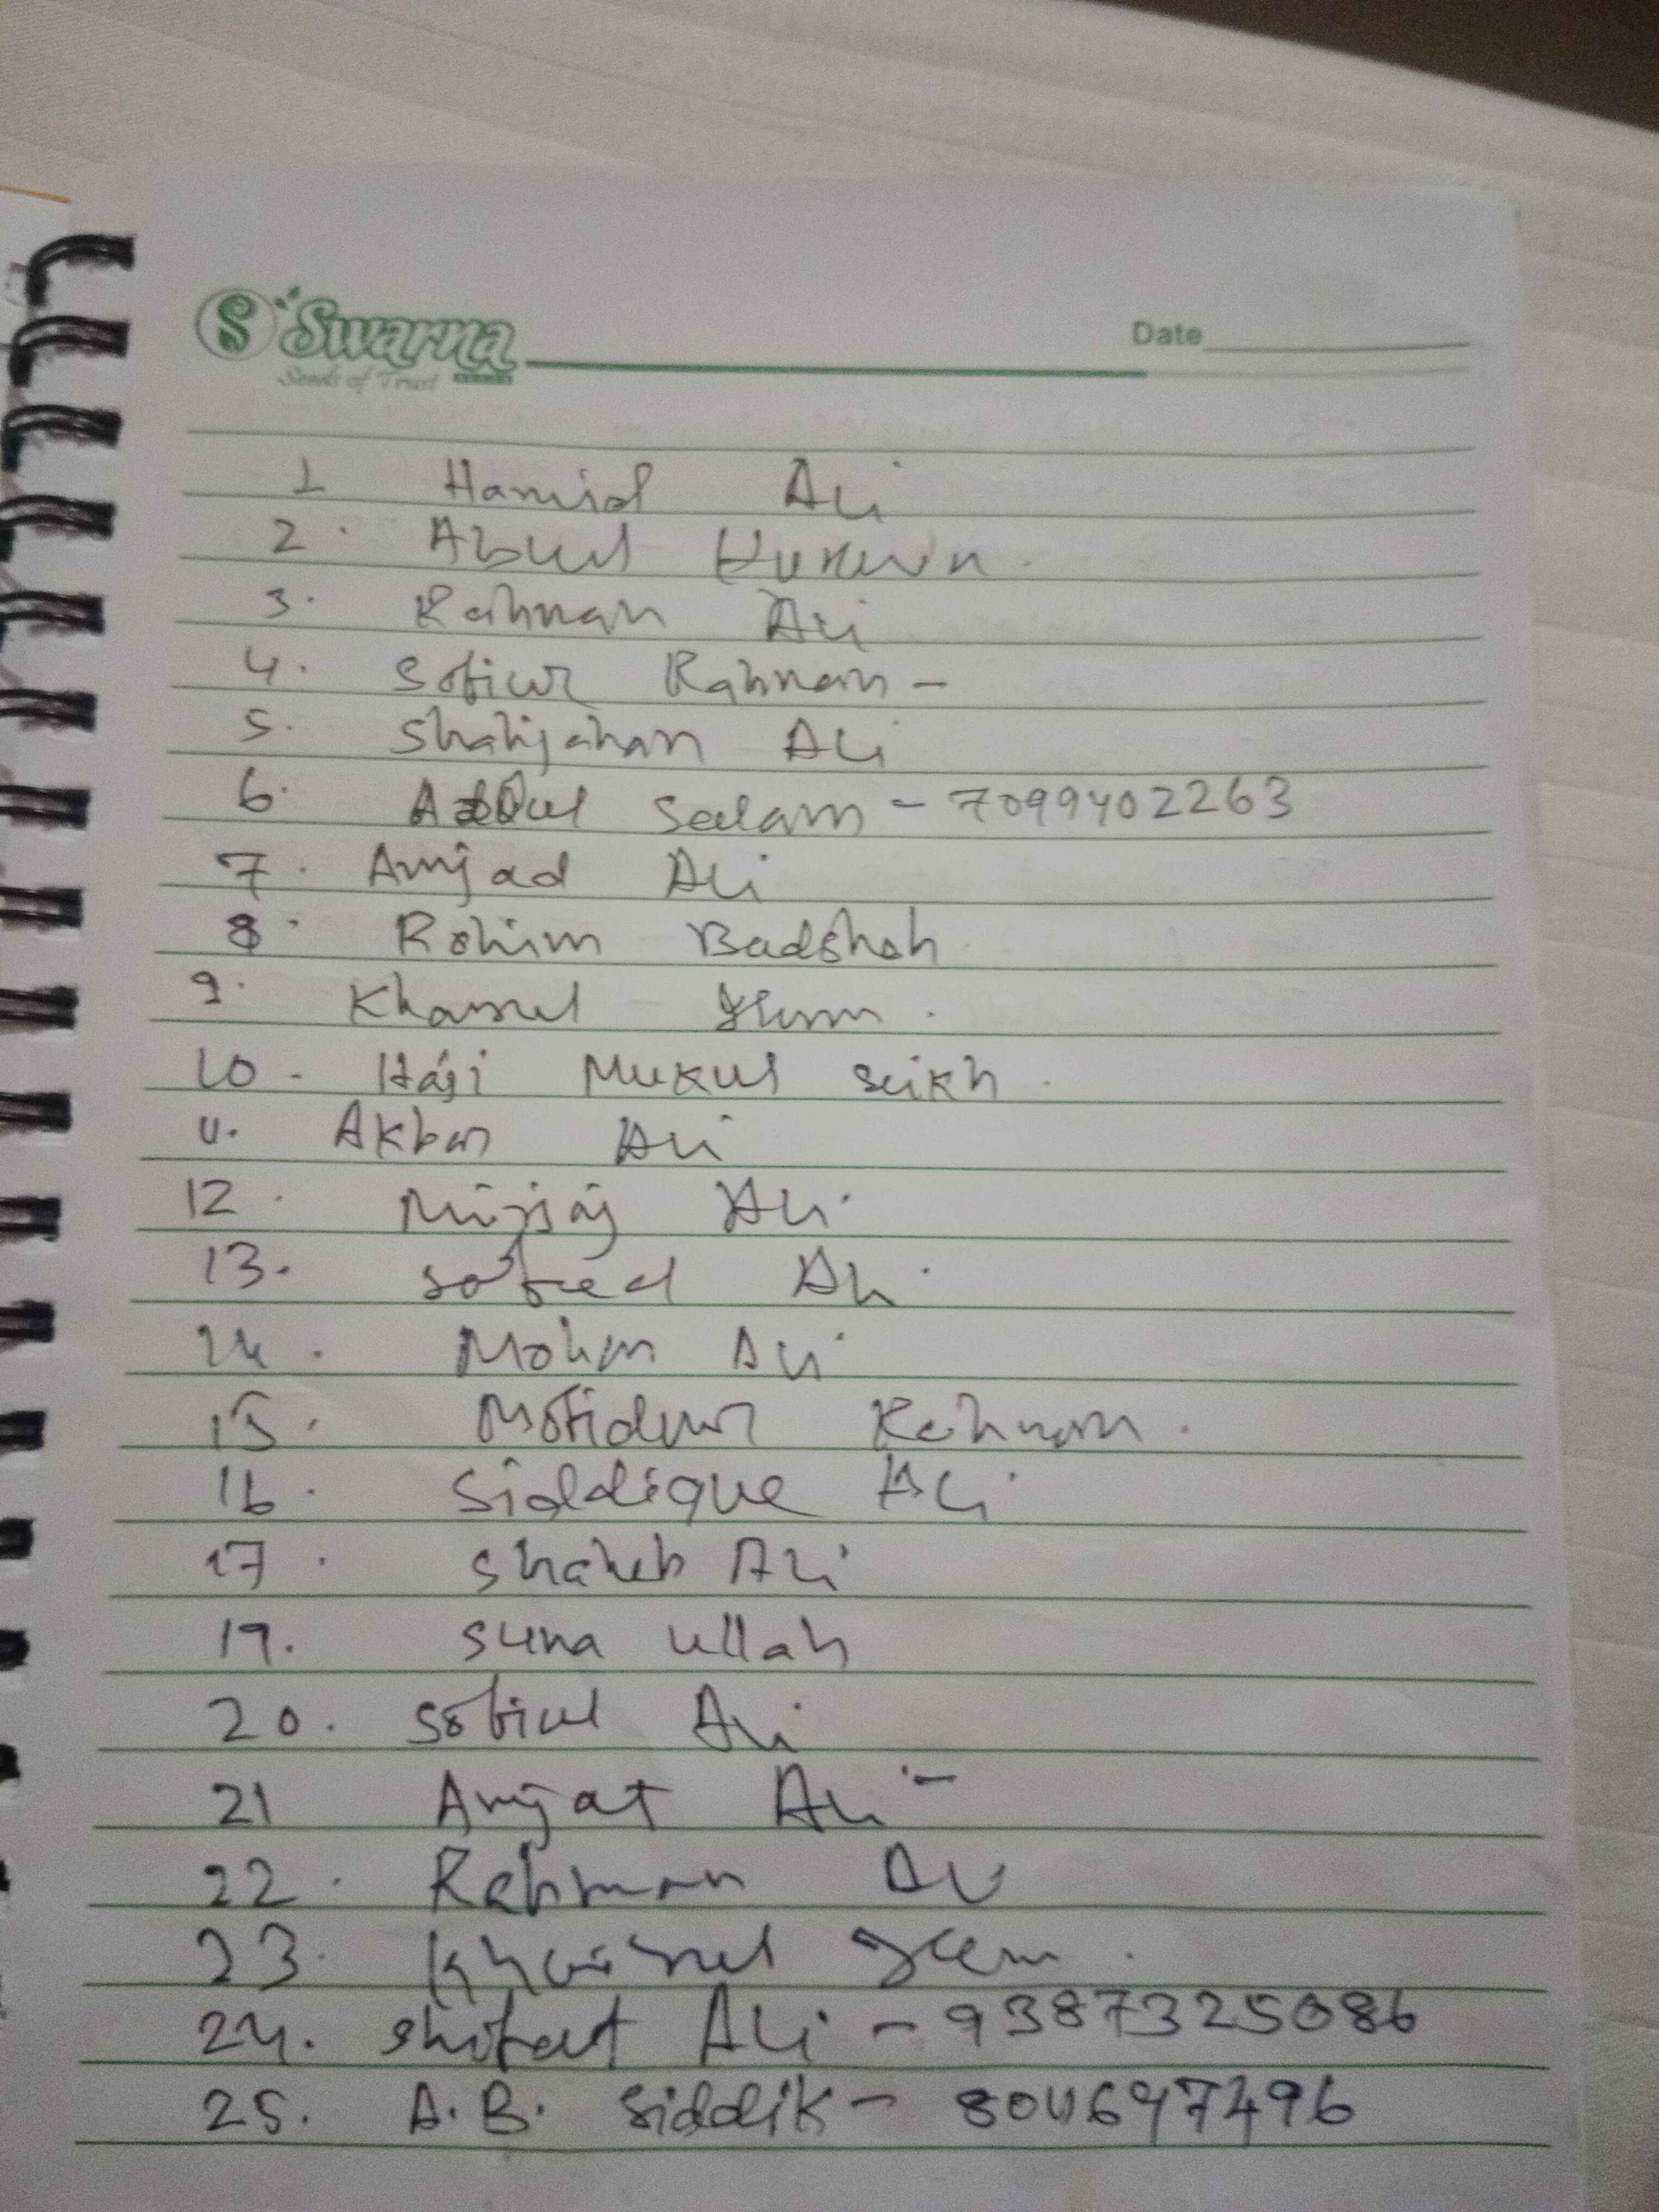 S Swarna
Seeds of Trust
Date
1 Hamid Ali
2. Abul Hussain.
3. Rahman Ali
4. Sofiur Rahman -
5. Shahjahan Ali
6. Abdul Salam - 7099402263
7. Amjad Ali
8. Rohim Badshah
9. Khairul
10 - Haji Mukul Seikh.
11. Akbar Ali
12. Ali
13. Ali
14. Ali
15. Rahman.
16. Siddique Ali
17. Shaheb Ali
19. Suna ullah
20. Sofiul Ali
21 Amjat Ali -
22. Rahman Ali
23. Khairul
24. Ali - 9387325086
25. A.B. Siddik -